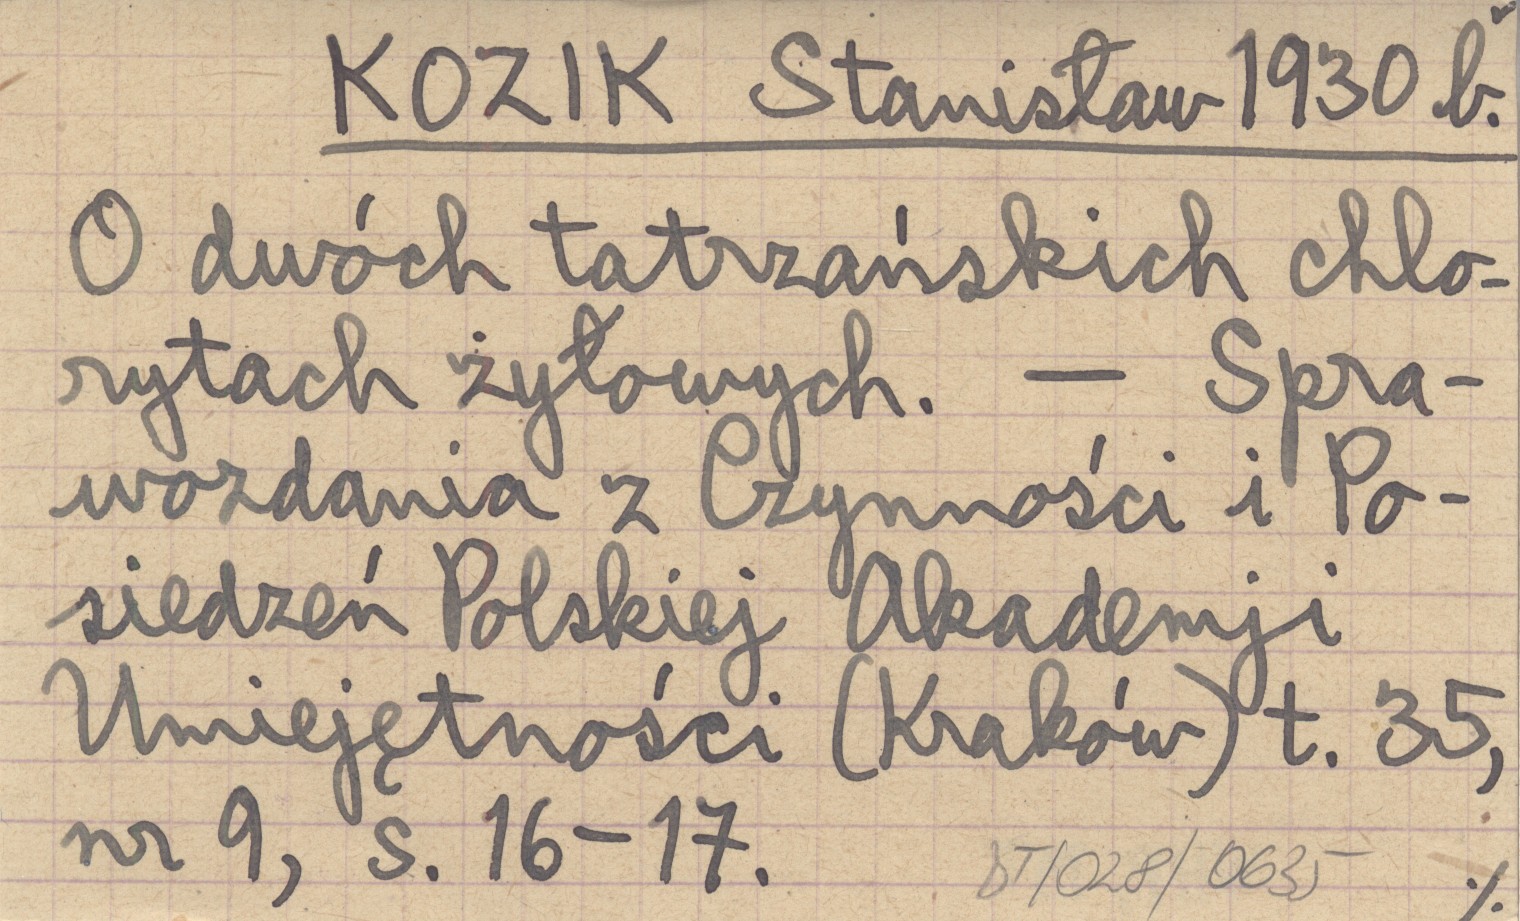 KOZIK Stanisław 1930 b.
O dwóch tatrzańskich chlo-
rytach żyłowych. — Spra-
wozdania z Czynności i Po-
siedzeń Polskiej Akademji
Umiejętności (Kraków) t. 35,
nr 9, s. 16-17.
DT/028/0635
./.